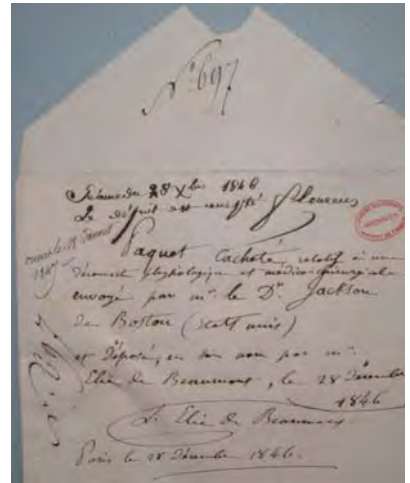 N° 697
Séance du 28 Xbre 1846
Le dépôt est accepté Flourens
ouvert le 18 Janvier
1847
Paquet Cacheté, relatif à une
découverte physiologique et médico-chirurgicale
envoyé par mr. le Dr. Jackson
de Boston (états unis)
et déposé, en son nom par mr.
Elie de Beaumont, le 28 Décembre
1846
L. Elie de Beaumont
Paris le 28 Décembre 1846.